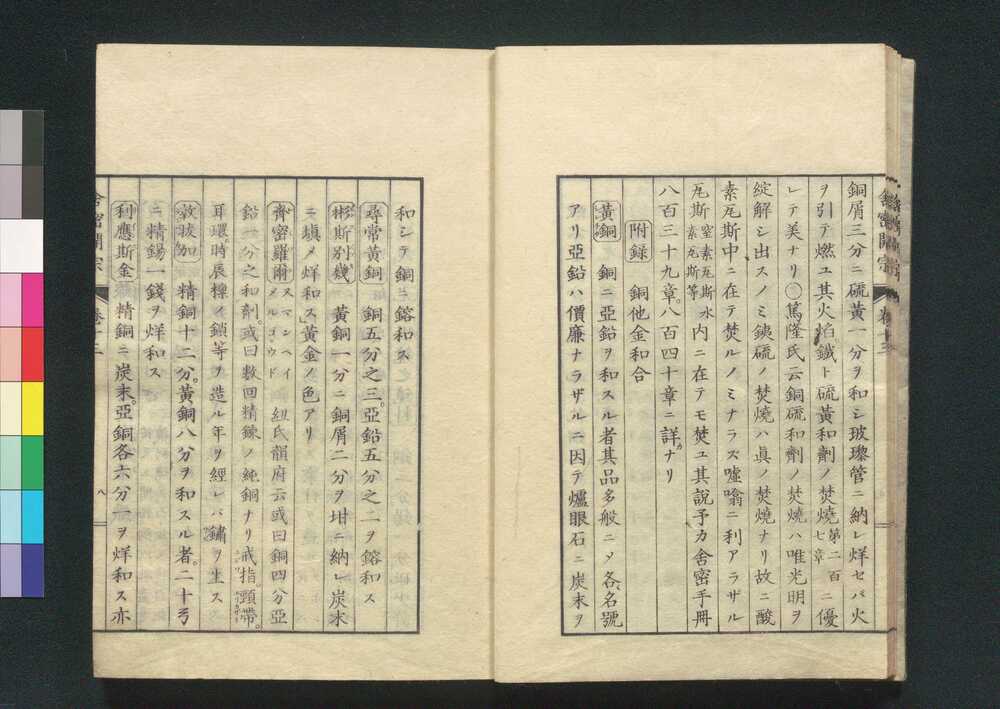 銅屑三分ニ硫黄一分ヲ和シ玻瓈管ニ納レ烊セバ火
ヲ引テ燃ユ其火焰鐵ト硫黄和劑ノ焚燒第二百七章ニ優
レテ美ナリ○篤隆氏云銅硫和劑ノ焚燒ハ唯光明ヲ
綻解シ出スノミ銕硫ノ焚燒ハ眞ノ焚燒ナリ故ニ酸
素瓦斯中ニ在テ焚ルノミナラズ噓噏ニ利アラザル
瓦斯窒素瓦斯水素瓦斯等内ニ在テモ焚ユ其說予カ舍密手冊
八百三十九章。八百四十章ニ詳ナリ
附録 銅他金和合
黄銅 銅ニ亞鉛ヲ和スル者其品多般ニ〆各名號
アリ亞鉛ハ價廉ナラザルニ因テ爐眼石ニ炭末ヲ
舍密開宗 卷十三
和シテ銅ト鎔和ス
尋常黄銅 銅五分之三。亞鉛五分之二ヲ鎔和ス
彬斯別幾 黄銅一分ニ銅屑二分ヲ坩ニ納レ炭末
ニ塡メ烊和ス黄金ノ色アリ
齊密羅爾スマンヘイメルゴウド 紐氏韻府云或曰銅四分亞
鉛一分之和劑或曰數回精鍊ノ純銅ナリ戒指頸帶。
耳環。時辰標ノ鎖等ヲ造ル年ヲ經レバ鏽ヲ生ス
敦拔加 精銅十二分。黄銅八分ヲ和スル者。二十弓
ニ精錫一錢ヲ烊和ス
利應斯金 精銅ニ炭末。亞銅各六分一ヲ烊和ス亦
舍密開宗 卷十三 八